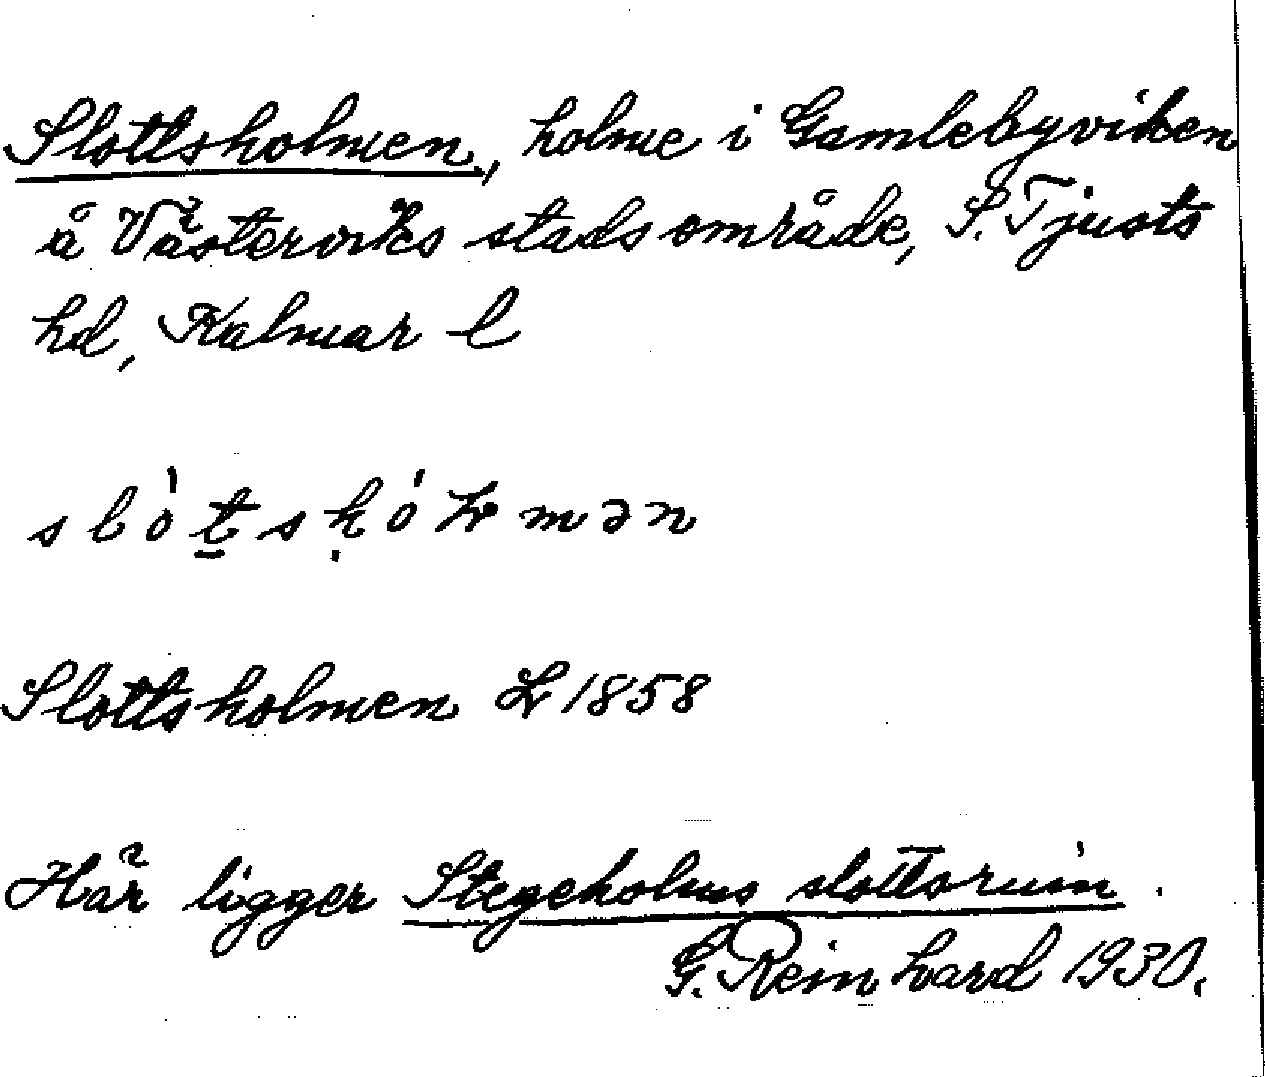 Slottsholmen, holme i Gamlebyviken
å Västerviks stadsområde, S. Tjusts
hd, Kalmar l
slòtshólmən
Slottsholmen L 1858
Här ligger Stegeholms slottsruin.
G. Reinhard 1930.